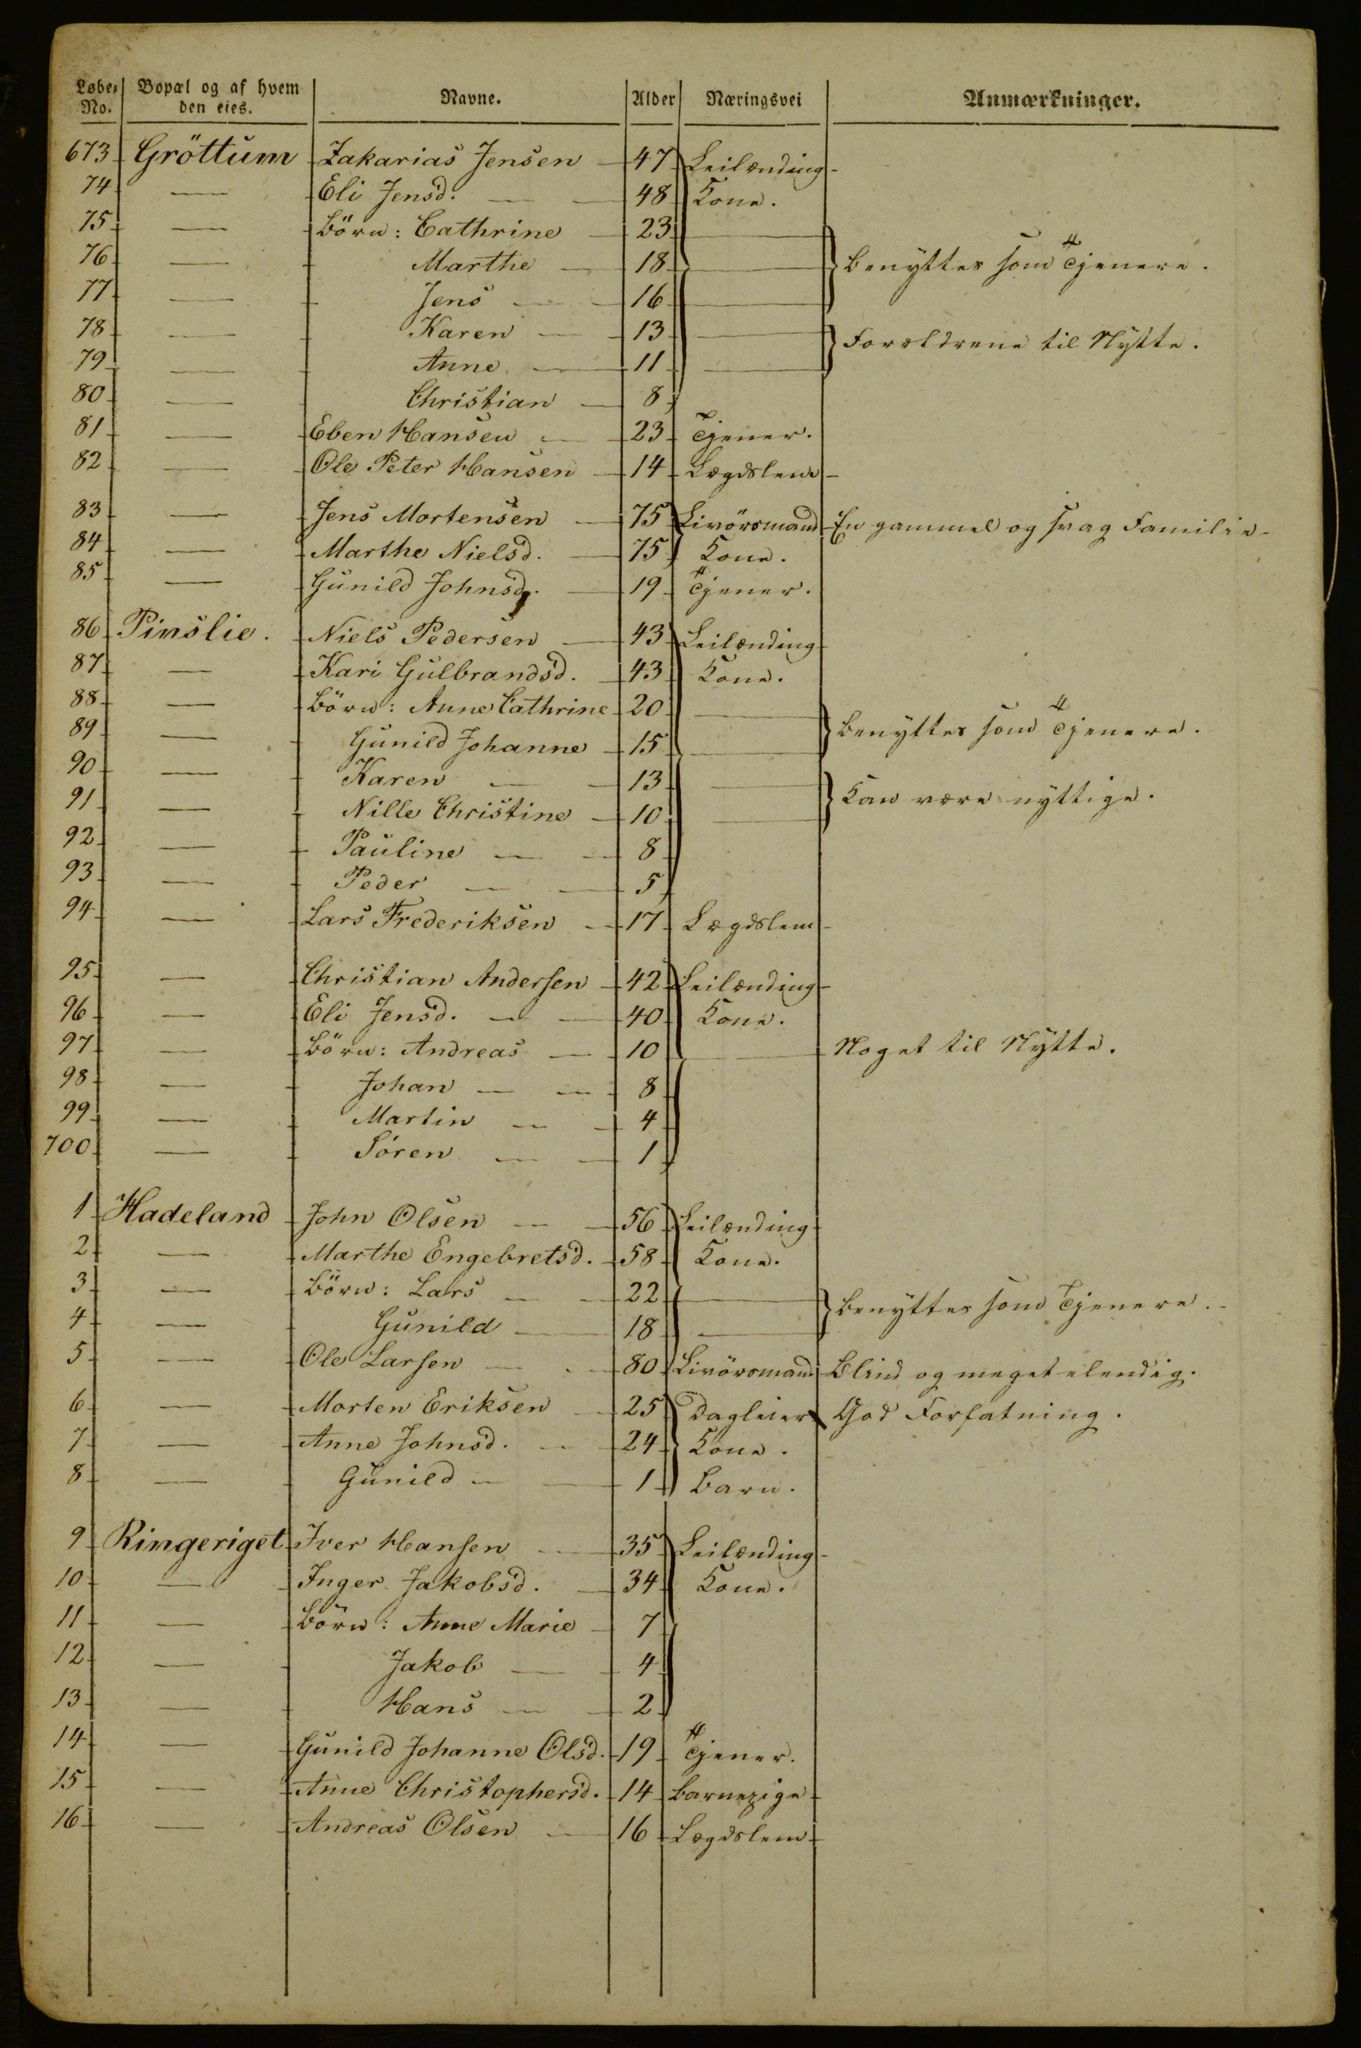 Løbe-No. | Bopæl og af hvem den eies. | Navne. | Alder | Næringsvei | Anmærkninger.
673 Gröttum Zakarias Jensen — 47 Leilænding
74 — Eli Jensd. — 48 Kone.
75 — Börn: Cathrine 23 —
76 — Marthe — 18 — } Benyttes som Tjenere.
77 — Jens — 16 —
78 — Karen — 13 — } Forældrene til Nytte.
79 — Anne — 11 —
80 — Christian — 8
81 — Eben Hansen — 23 Tjener.
82 — Ole Peter Hansen — 14 Lægdslem
83 — Jens Mortensen — 75 Livörsmand En gammel og svag Familie
84 — Marthe Nielsd. — 75 Kone.
85 — Gunild Johnsd. — 19 Tjener.
86 Pinslie. Niels Pedersen — 43 Leilænding
87 — Kari Gulbrandsd. 43 Kone.
88 — Börn: Anne Cathrine 20 — } Benyttes som Tjenere.
89 — Gunild Johanne 15 —
90 — Karen — 13 — } Kan være nyttige.
91 — Nille Christine 10 —
92 — Pauline — 8
93 — Peder — 5
94 — Lars Frederiksen — 17 Lægdslem
95 — Christian Andersen 42 Leilænding
96 — Eli Jensd. — 40 Kone.
97 — Börn: Andreas — 10 — Noget til Nytte.
98 — Johan — 8
99 — Martin — 4
700 — Sören — 1
1 Hadeland John Olsen — 56 Leilænding
2 — Marthe Engebretsd. 58 Kone.
3 — Börn: Lars — 22 — } Benyttes som Tjenere.
4 — Gunild — 18 —
5 — Ole Larsen — 80 Livörsmand Blind og meget elendig.
6 — Morten Eriksen — 25 Dagleier God Forfatning.
7 — Anne Johnsd. — 24 Kone.
8 — Gunild — 1 Barn.
9 Ringeriget Iver Hansen — 35 Leilænding
10 — Inger Jakobsd. — 34 Kone.
11 — Börn: Anne Marie 7
12 — Jakob — 4
13 — Hans — 2
14 — Gunild Johanne Olsd. 19 Tjener.
15 — Anne Christophersd. 14 Barnepige
16 — Andreas Olsen — 16 Lægdslem